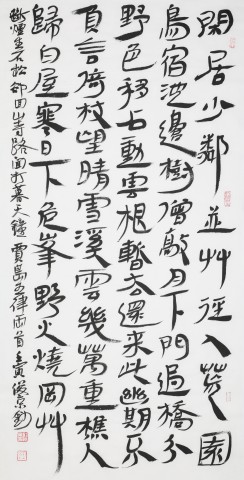 閑居少鄰並艸徑入荒園
鳥宿池邊樹僧敲月下門過橋分
野色移石動雲根暫去還來此幽期不
負言倚杖望晴雪溪雲幾萬重樵人
歸白屋寒日下危峯野火燒岡艸
斷煙生石松卻回山寺路聞打暮天鐘 賈島五律兩首 壬寅